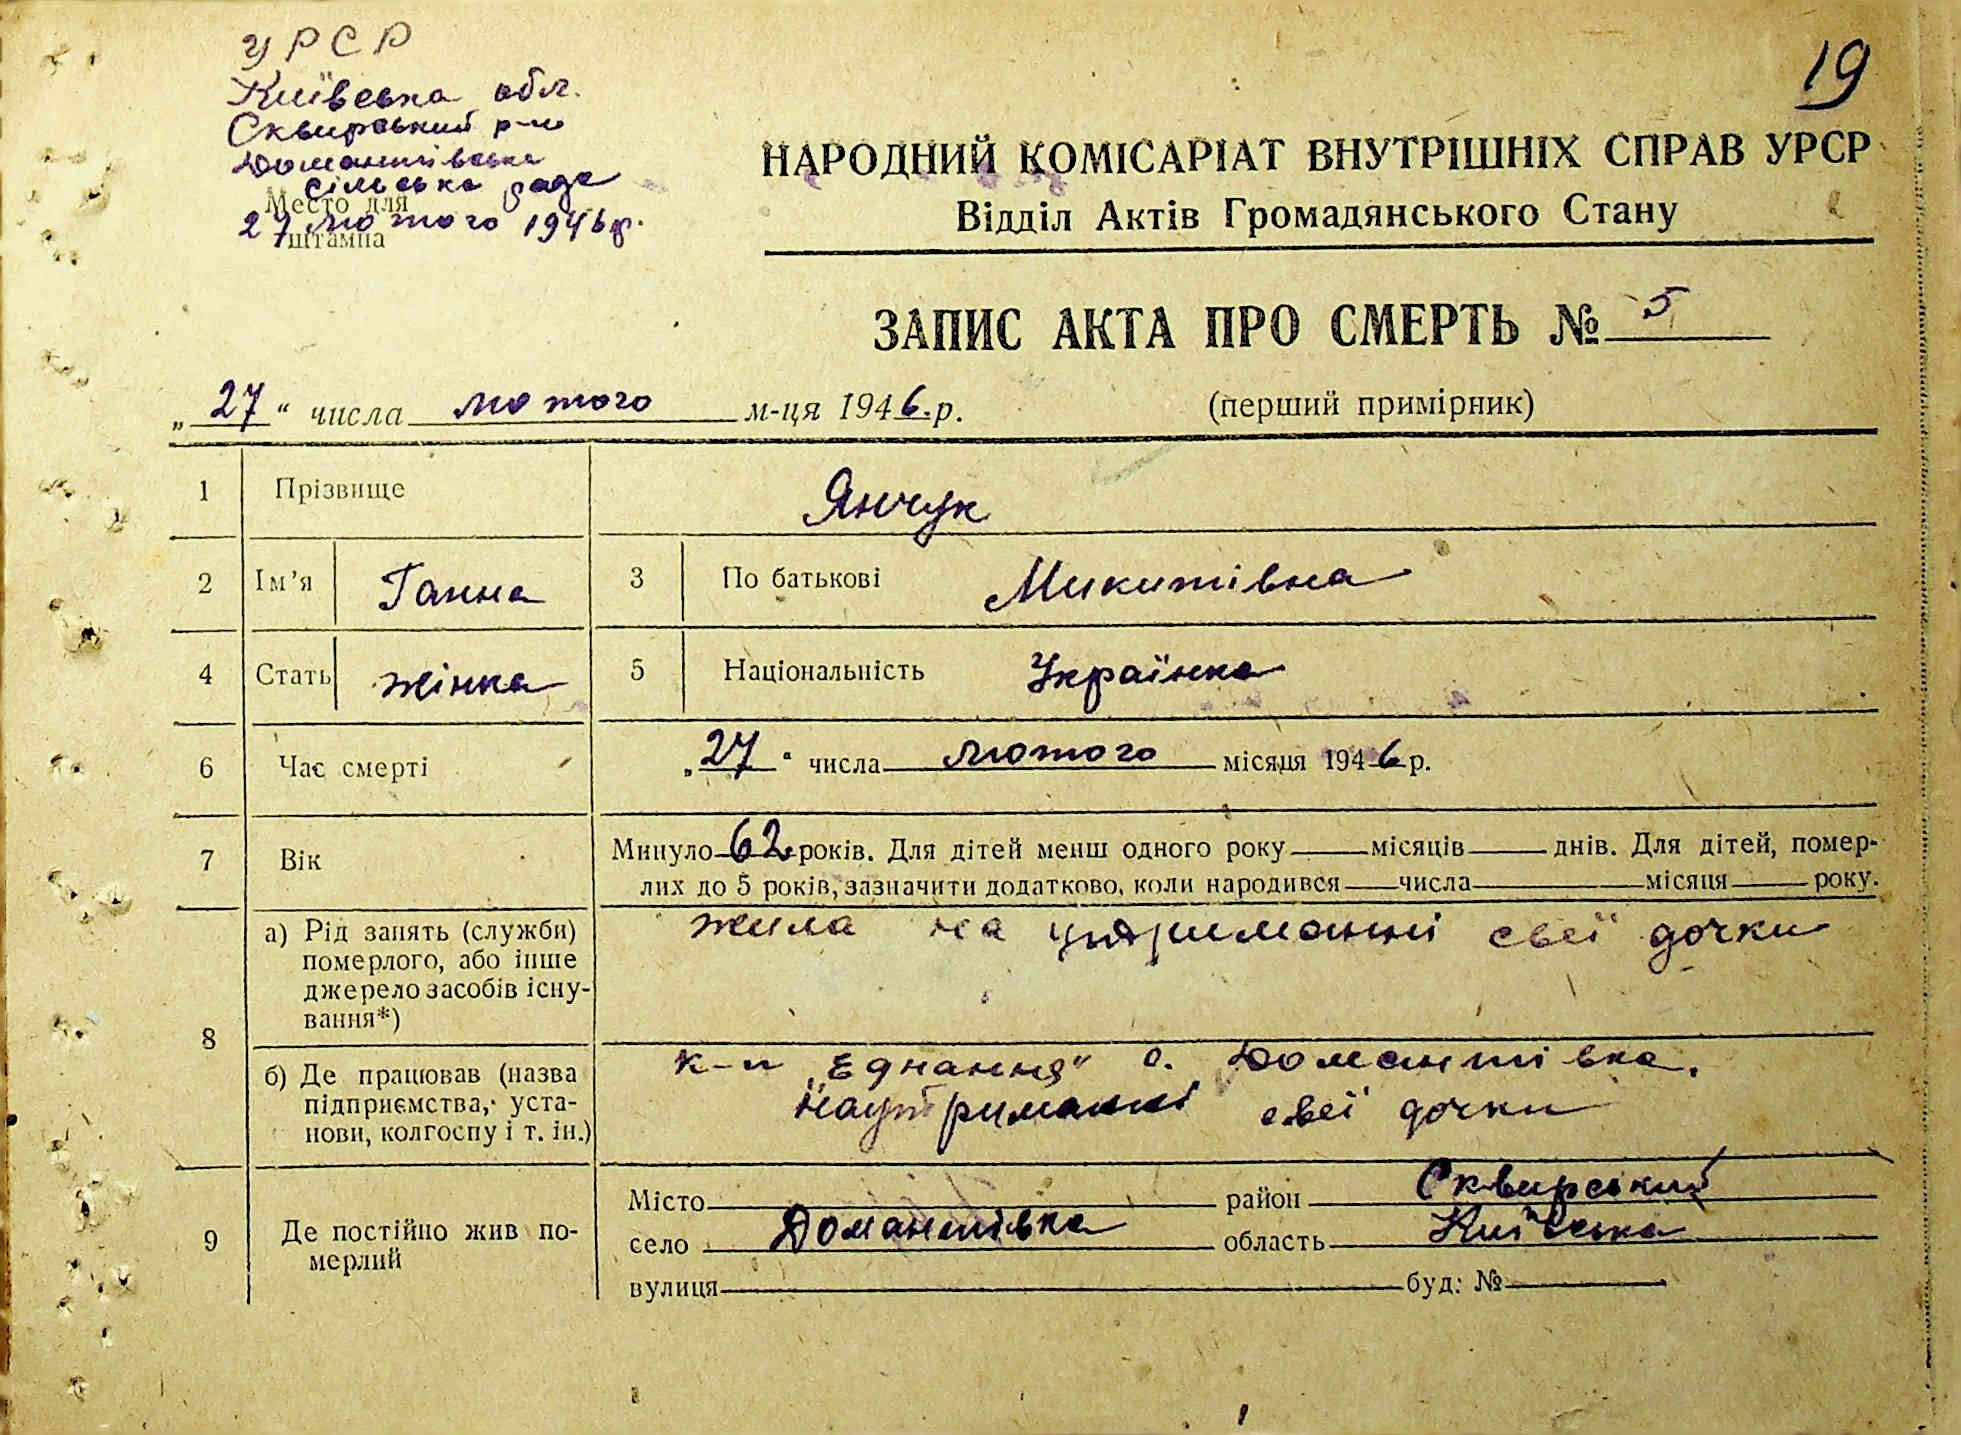 19
УРСР
Київська обл.
Сквирський р-н
Домантівська
сільська рада
Место для
27 лютого 1946 р.
штампа
НАРОДНИЙ КОМІСАРІАТ ВНУТРІШНІХ СПРАВ УРСР
Відділ Актів Громадянського Стану
ЗАПИС АКТА ПРО СМЕРТЬ № 5
„27“ числа лютого м-ця 1946. р. (перший примірник)
1 Прізвище Янчук
2 Ім’я Ганна 3 По батькові Микитівна
4 Стать жінка 5 Національність Українка
6 Час смерті „27“ числа лютого місяця 1946 р.
7 Вік Минуло 62 років. Для дітей менш одного року місяців днів. Для дітей, помер-
лих до 5 років, зазначити додатково, коли народився числа місяця року.
8 а) Рід занять (служби) померлого, або інше джерело засобів існу-вання*) жила на утриманні свеї дочки
б) Де працював (назва підприємства, уста-нови, колгоспу і т. ін.) к-п „Еднання“ с. Домантівка.
наутриманні свеї дочки
9 Де постійно жив по-мерлий Місто район Сквирський
село Домантівка область Київська
вулиця буд: №